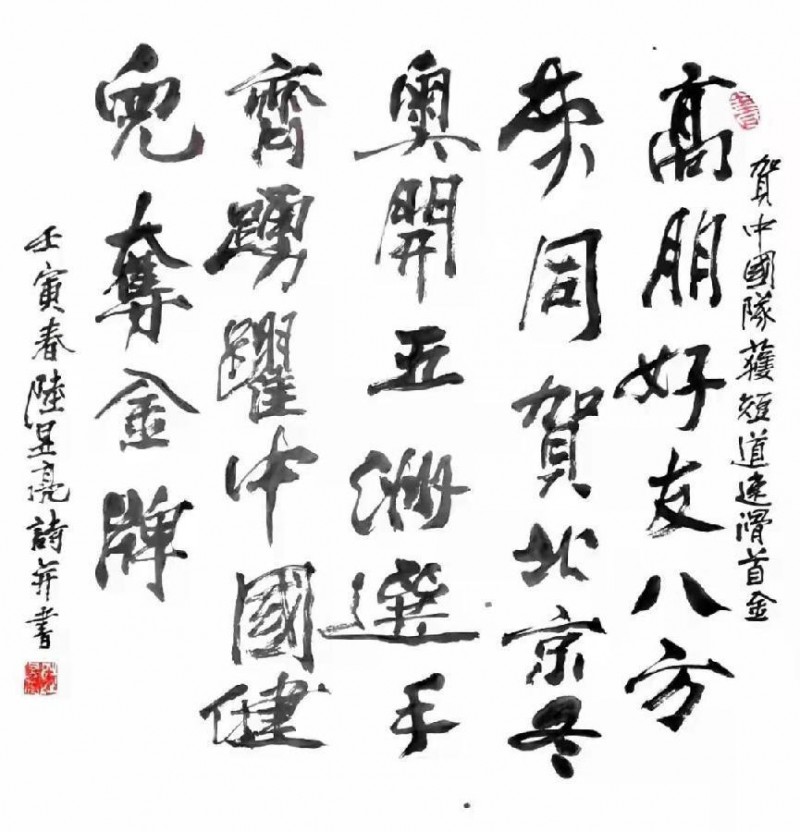 賀中國隊獲短道速滑首金
高朋好友八方
來同賀北京冬
奧開亚洲選手
齊踴躍中國健
兒奪金牌
壬寅春陸昱亮詩并書